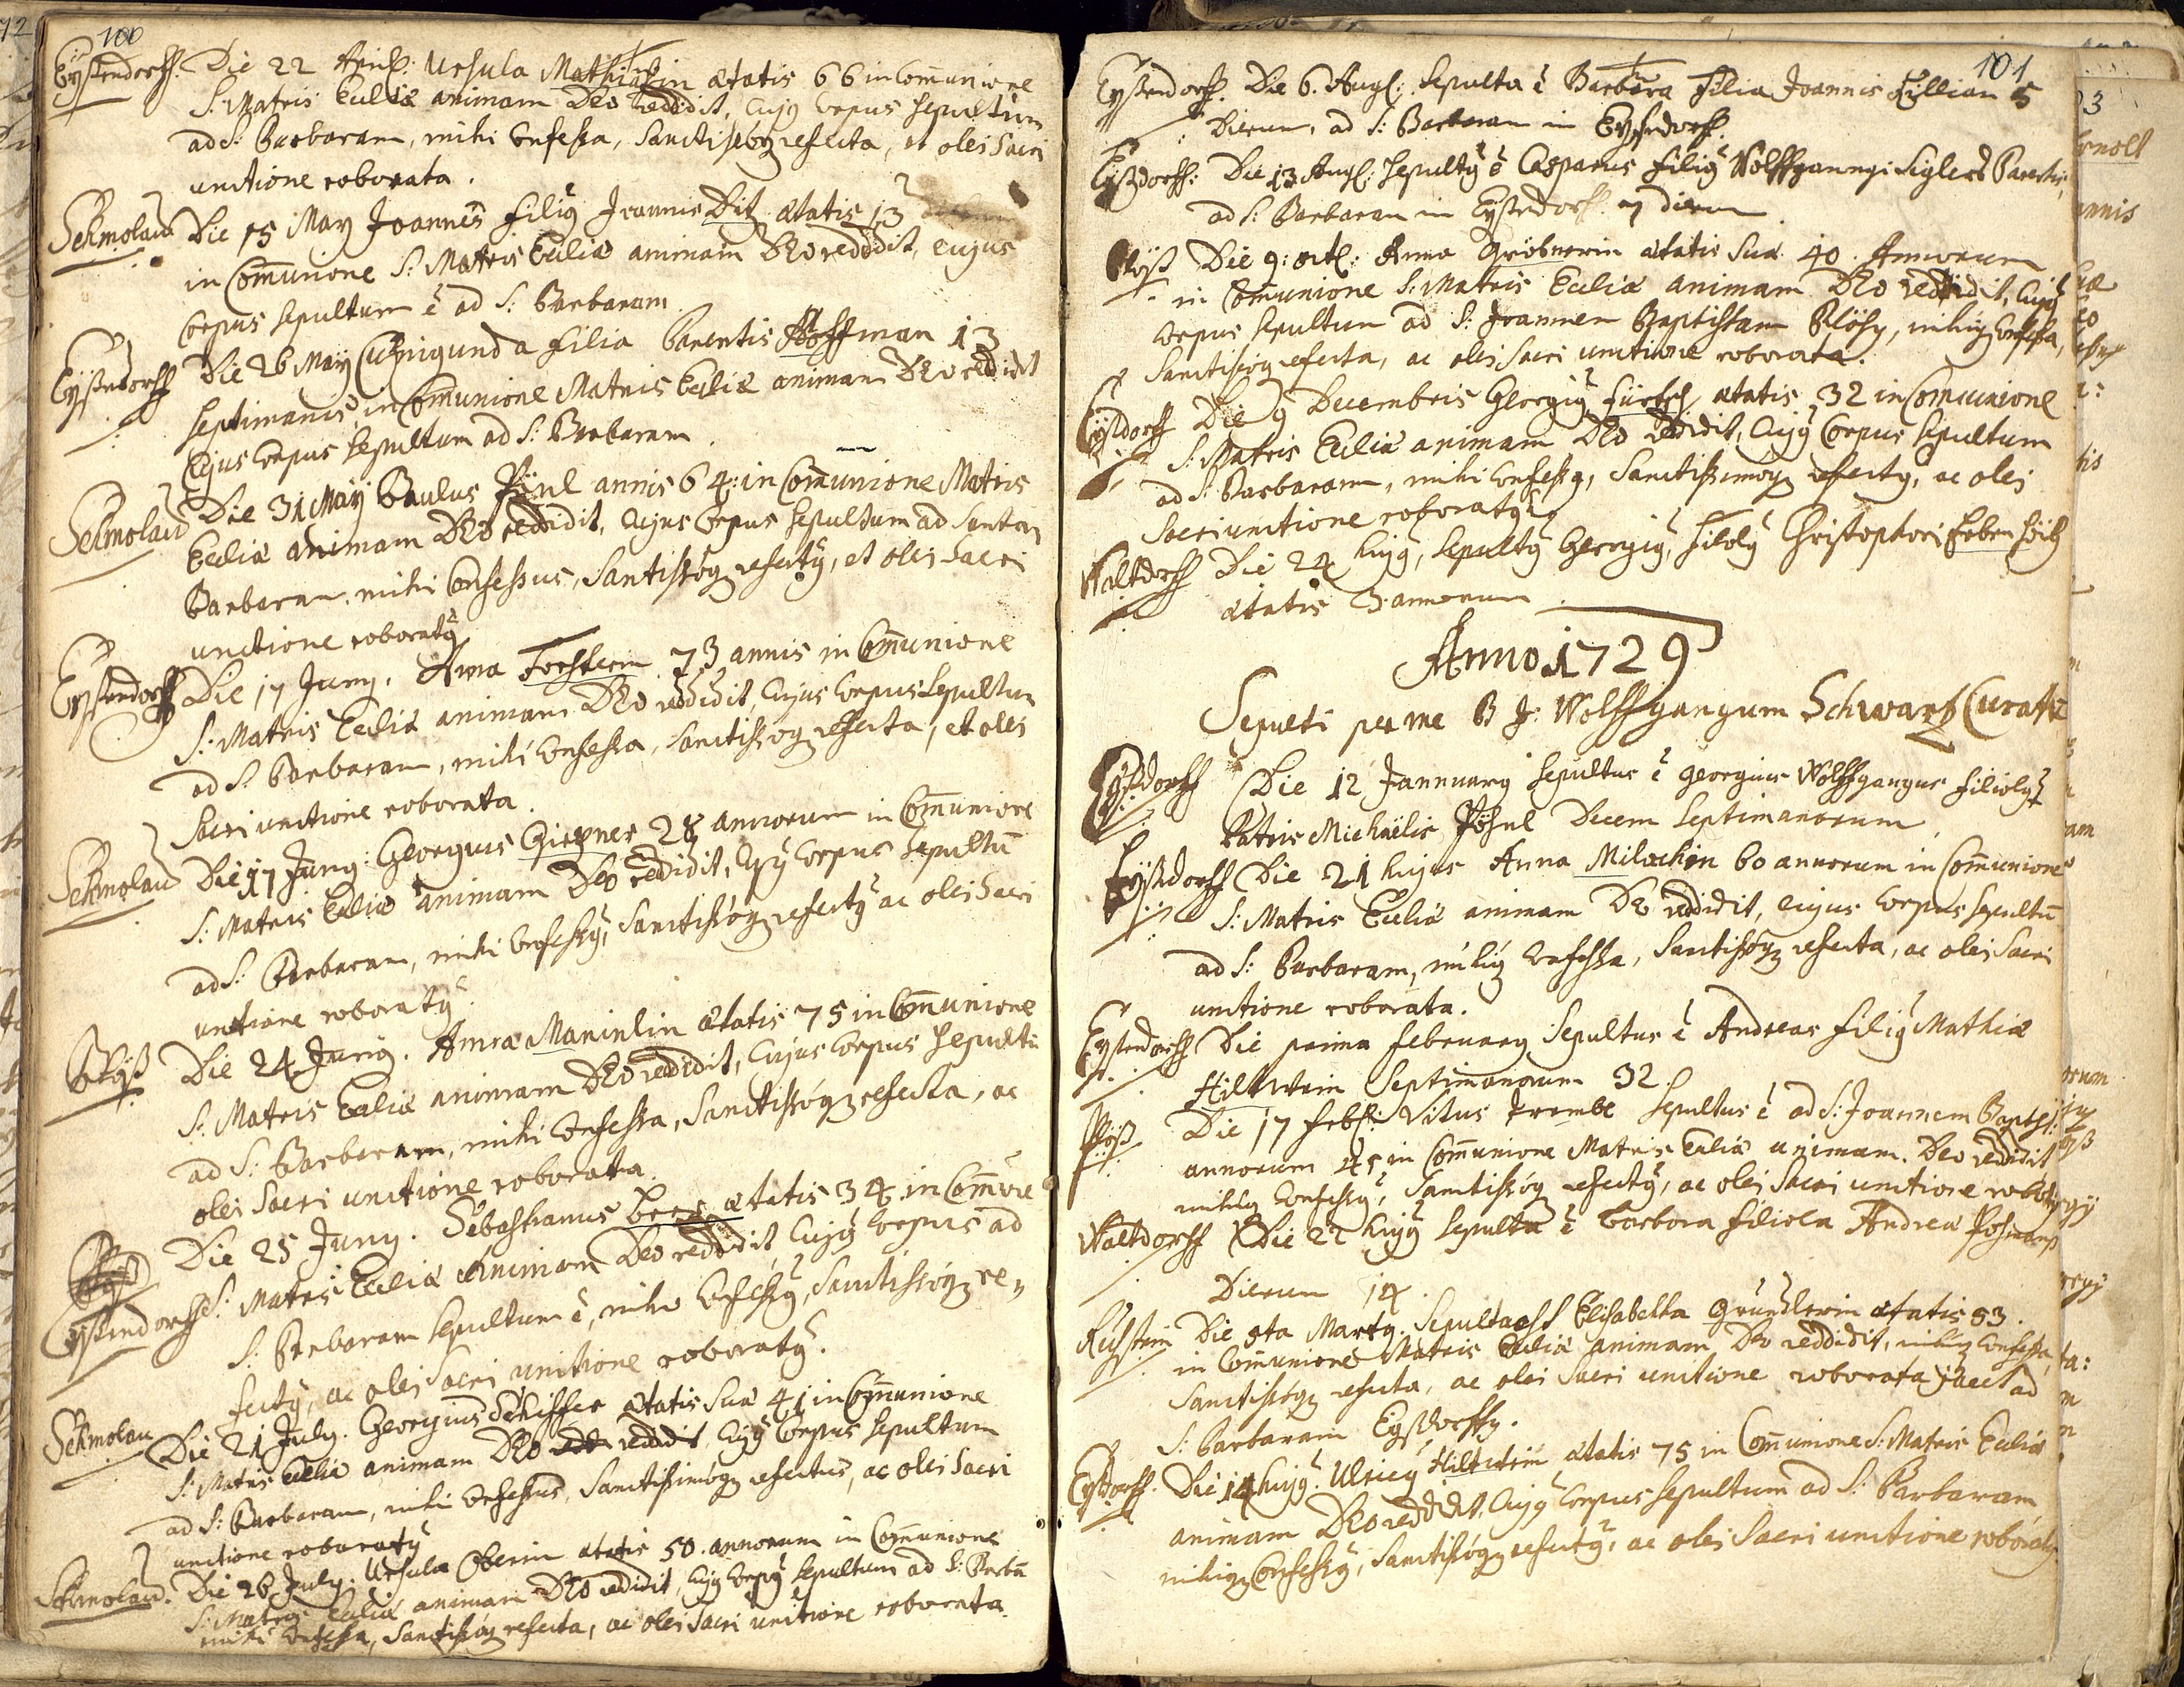 100
Eyßendorff. Die 22 April: Ursula Mathiaßin ætatis 66 in Communione
S: Matris Eccliæ animam Deo reddidit, cujꝯ corpus sepultum
ad S: Barbaram, mihi confessa, sanctissoq refecta, et olei sacri
unctione roborata.
Schmolau Die 15 May Joannes filiꝯ Joannis Ditz ætatis 13
in Communione S: Matris Eccliæ animam Deo reddidit, cujus
Corpus sepultum ē ad S: Barbaram.
Eyßendorff Die 26 Maÿ Cunigunda filia Parentis Hoffman 13
septimanis, in Communione Matris Eccliæ animam Deo reddidit
Cujus corpus sepultum ad S: Barbaram.
Schmolau Die 31 Maÿ Paulus annis 64: in Communione Matris
Eccliæ animam Deo reddidit, cujus corpus sepultum ad Santam
Barbaram, mihi Confessus, Santissoq refectꝯ, et olei sacri
unctione roboratꝯ
Eyßendorff Die 17 Juny. Anna Forsterin 73 annis in Communione
S: Matris Eccliæ animam Deo reddidit, cujus corpus sepultum
ad S: Barbaram, mihi confessa, sanctissoq refecta, et olei
sacri unctione roborata.
Schmolau Die 17 Juny: Georgius Giexner 28 annorum in Communione
S: Matris Eccliæ animam Deo reddidit, Cujꝯ corpus sepultū
ad S: Barbaram, mihi confessꝯ, Sanctissóq refectꝯ ac olei sacri
unctione roboratꝯ.
Plöß Die 24 Juny. Anna Maninlin ætatis 75 in Communione
S: Matris Eccliæ animam Deo reddidit, Cujus corpus sepultū
ad S: Barbaram, mihi confessa, Sanctissóq refecta, ac
olei sacri unctione roborata.
Die 25 Juny. Sebastianus Beer ætatis 34 in Comōe
Eyßendorff S: Matris Eccliæ Animam Deo reddidit Cujꝯ Corpus ad
S: Barbaram sepultum ē, mihi confessꝯ, Sanctissóq re,,
fectꝯ, ac olei Sacri unctione roboratꝯ.
Schmolau Die 21 July. Georgius Schiffer ætatis suæ 41 in Communione
S: Matris Eccliæ animam Deo reddidit, cujꝯ Corpus sepultum
ad S: Barbaram, mihi Confessus, Sanctissimóq refectus, ac olei sacri
unctione roboratꝯ
Schmolau. Die 26 July. Ursula Oberin ætatis 50. annorum in Communione
S: Matris Eccliæ animam Deo reddidit, Cujꝯ corpꝯ sepultum ad S: Barbā
mihi Confessa, Sanctissóq refecta, ac olei sacri unctione roborata.
101
Eyßendorff. Die 6. Augl: sepulta ē Barbara Filia Joannis Killian 5
Dierum, ad S: Barbaram in Eyßndorff.
Eyßdorff: Die 13 Augl: sepultꝯ ē Casparus filiꝯ Wolffganngi Siglers Parentis,
ad S: Barbaram in Eyßndorff. 7 dierum.
Plöß Die 9: octl: Anna Gröbnerin ætatis suæ 40. Annorum
in Communione S: Matris Eccliæ animam Deo reddidit, Cujꝯ
corpus sepultum ad S: Joannem Baptistam Plößy, mihiq confessa,
Sanctissóq refecta, ac olei sacri unctione roborata.
Eyßdorff Die 9 Decembris Georgiꝯ Fürtsch ætatis 32 in Communione
S: Matris Eccliæ animam Deo reddidit, Cujꝯ Corpus sepultum
ad S: Barbaram, mihi confessꝯ, Sanctissimóq refectꝯ, ac olei
Sacri unctione roboratꝯ
Waltdorff Die 24 hujꝯ, sepultꝯ Georgiꝯ, filolꝯ Christophori
ætatis 3. annorum.
Anno 1729
Sepulti per me B Jr: Wolffgangum Schwartz Curatū
Eyßdorff Die 12 Jannuary sepultus ē georgius Wolffgangus filiolꝯ
Patris Michaëlis Pößnl Decem Septimanorum.
Eyßdorff Die 21 hujus Anna Milachin 60 annorum in Communione
S: Matris Eccliæ animam Deo reddidit, cujus corpus sepultū
ad S: Barbaram, mihiq confessa, Santissóq refecta, ac olei sacri
unctione roborata.
Eyßendorff Die prima february sepultus ē Andreas filiꝯ Mathiæ
Hiltwein Septimanorum 32.
Plöß Die 17 febl: Vitus Trombl sepultus ē ad S: Joannem Baptist:
annorum 45 in Communione Matris Eccliæ animam Deo reddidit
mihiq Confessꝯ, Sanctissóq refectꝯ, ac olei sacri unctione
Waltdorff Die 22 hujꝯ sepulta ē barbara filiola Andreæ
Dierum 14.
Die 9ta Marty. sepulta est Elisabetha Gründlerin ætatis 53.
in Communione Matris Eccliæ animam Deo reddidit, mihiq confessa,
Sanctissóq refecta, ac olei sacri unctione roborata jacet ad
S: Barbaram Eyßdorffy.
Eyßdorff. Die 14 hujꝯ. Ulricꝯ Hiltwein ætatis 75 in Communione S: Matris Eccliæ
animam Deo reddidit, Cujꝯ corpus sepultum ad S: Barbaram
mihiq Confessꝯ, Sanctissóq refectꝯ, ac olei sacri unctione roboratꝯ